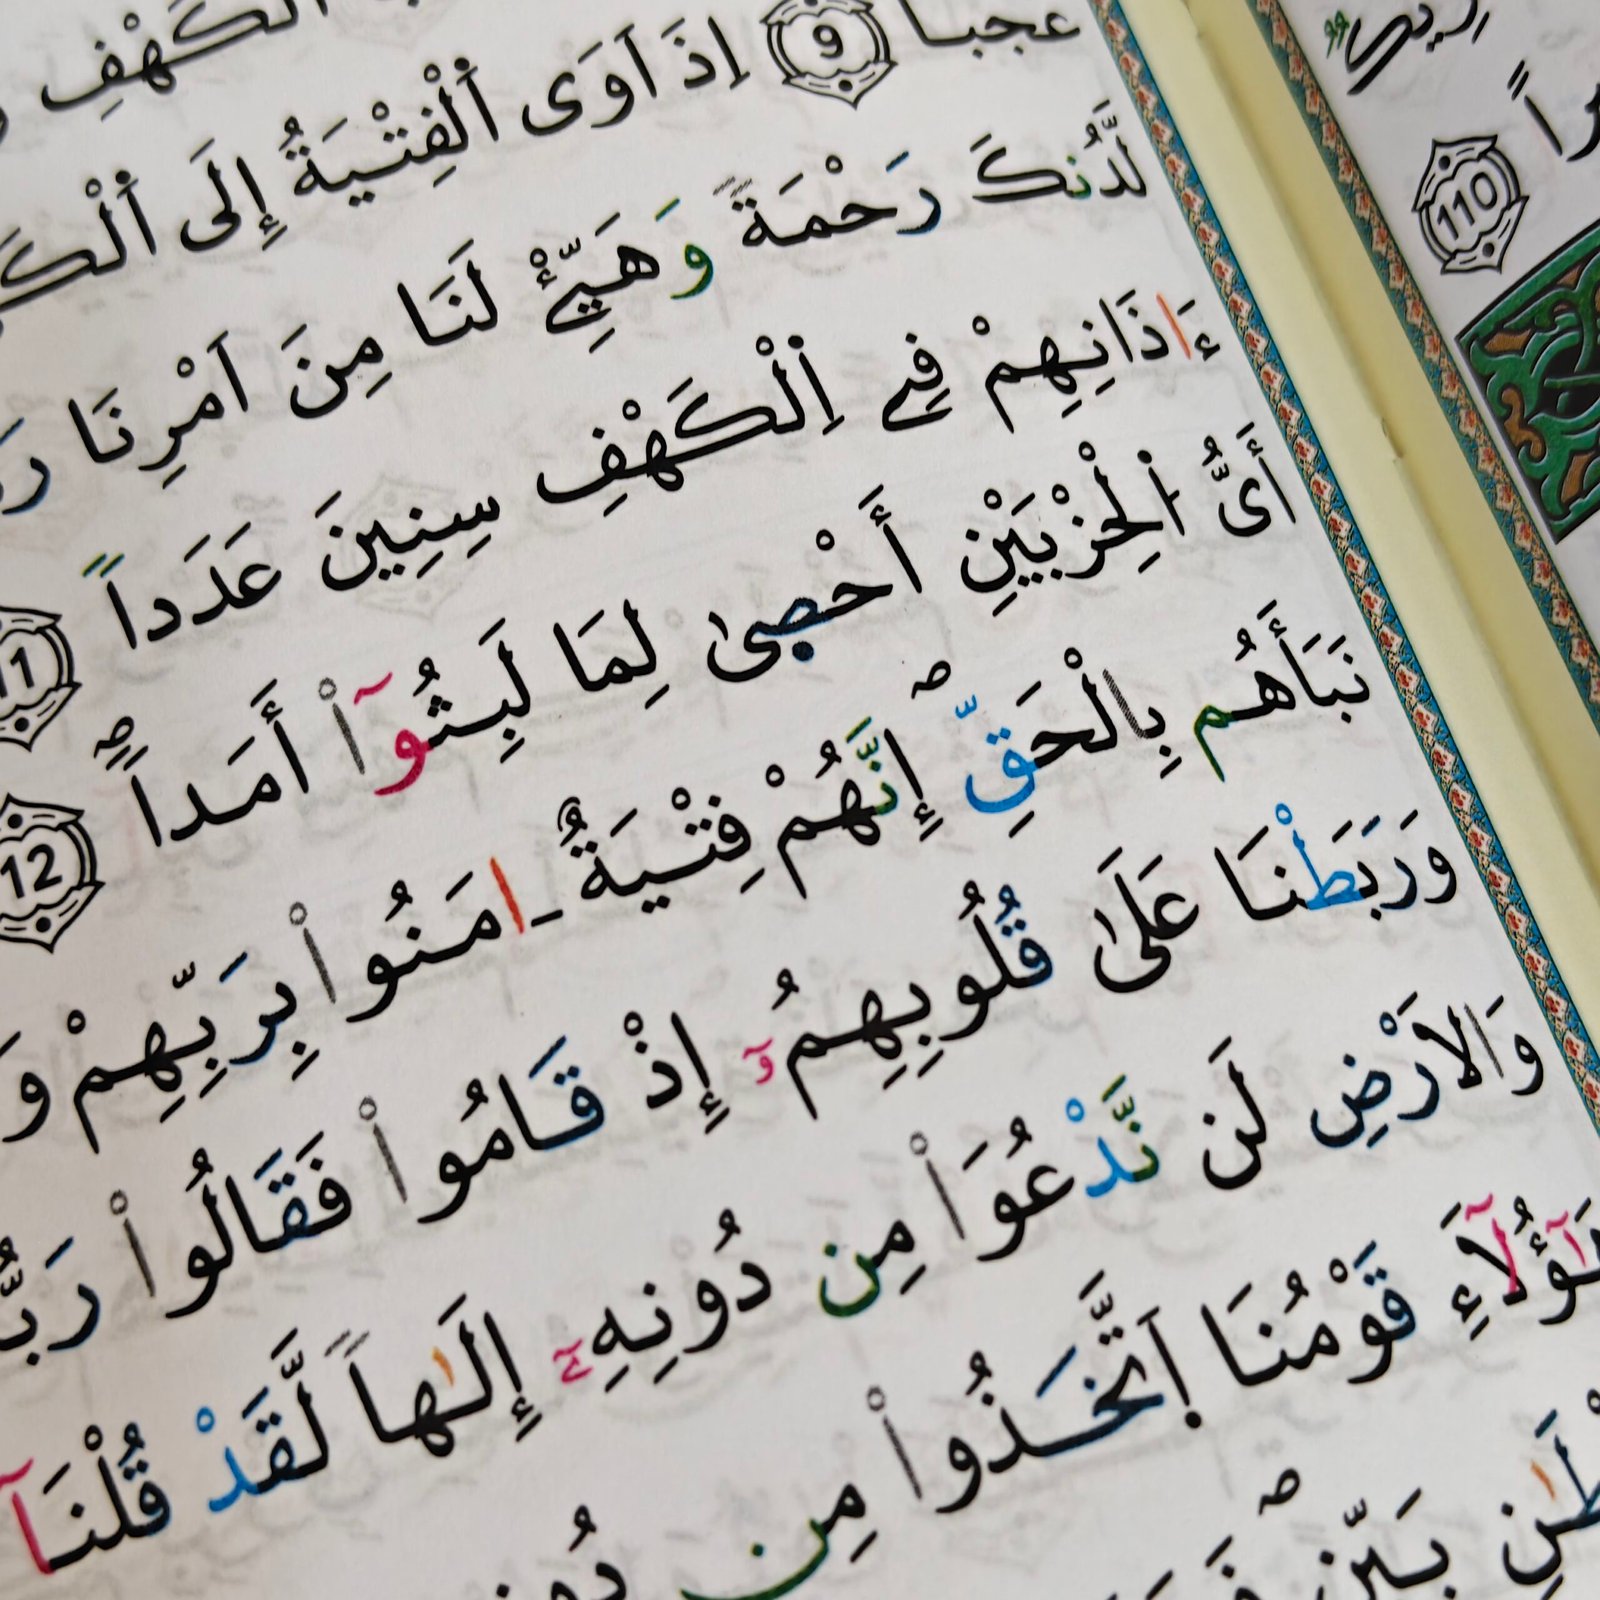 الْكَهْفِ
عجبا 9 اِذَ اَوَى اَ۬لْفِتْيَةُ إِلَى اَ۬لْكَ
لَّدُنكَ رَحْمَةً وَهَيِّےْ لَنَا مِنَ اَمْرِنَا رَ
ءَاذَانِهِمْ فِے اِ۬لْكَهْفِ سِنِينَ عَدَداً 11
أَىُّ اُ۬لْحِزْبَيْنِ أَحْصٜىٰ لِمَا لَبِثُوٓاْ أَمَداًۖ 12
نَبَأَهُم بِالْحَقِّۖ إِنَّهُمْ فِتْيَةٌ ـاٰمَنُواْ بِرَبِّهِمْ وَ
وَرَبَطْنَا عَلَىٰ قُلُوبِهِمُۥٓ إِذْ قَامُواْ فَقَالُواْ رَبُّ
وَالَارْضِ لَن نَّدْعُوَاْ مِن دُونِهِۦٓ إِلَٰهاً لَّقَدْ قُلْنَآ
ؤُلَآءِ قَوْمُنَا اَ۪تَّخَذُواْ مِن دُونِ
طَٰنِ بَيِّنٖۖ فَمَ
110